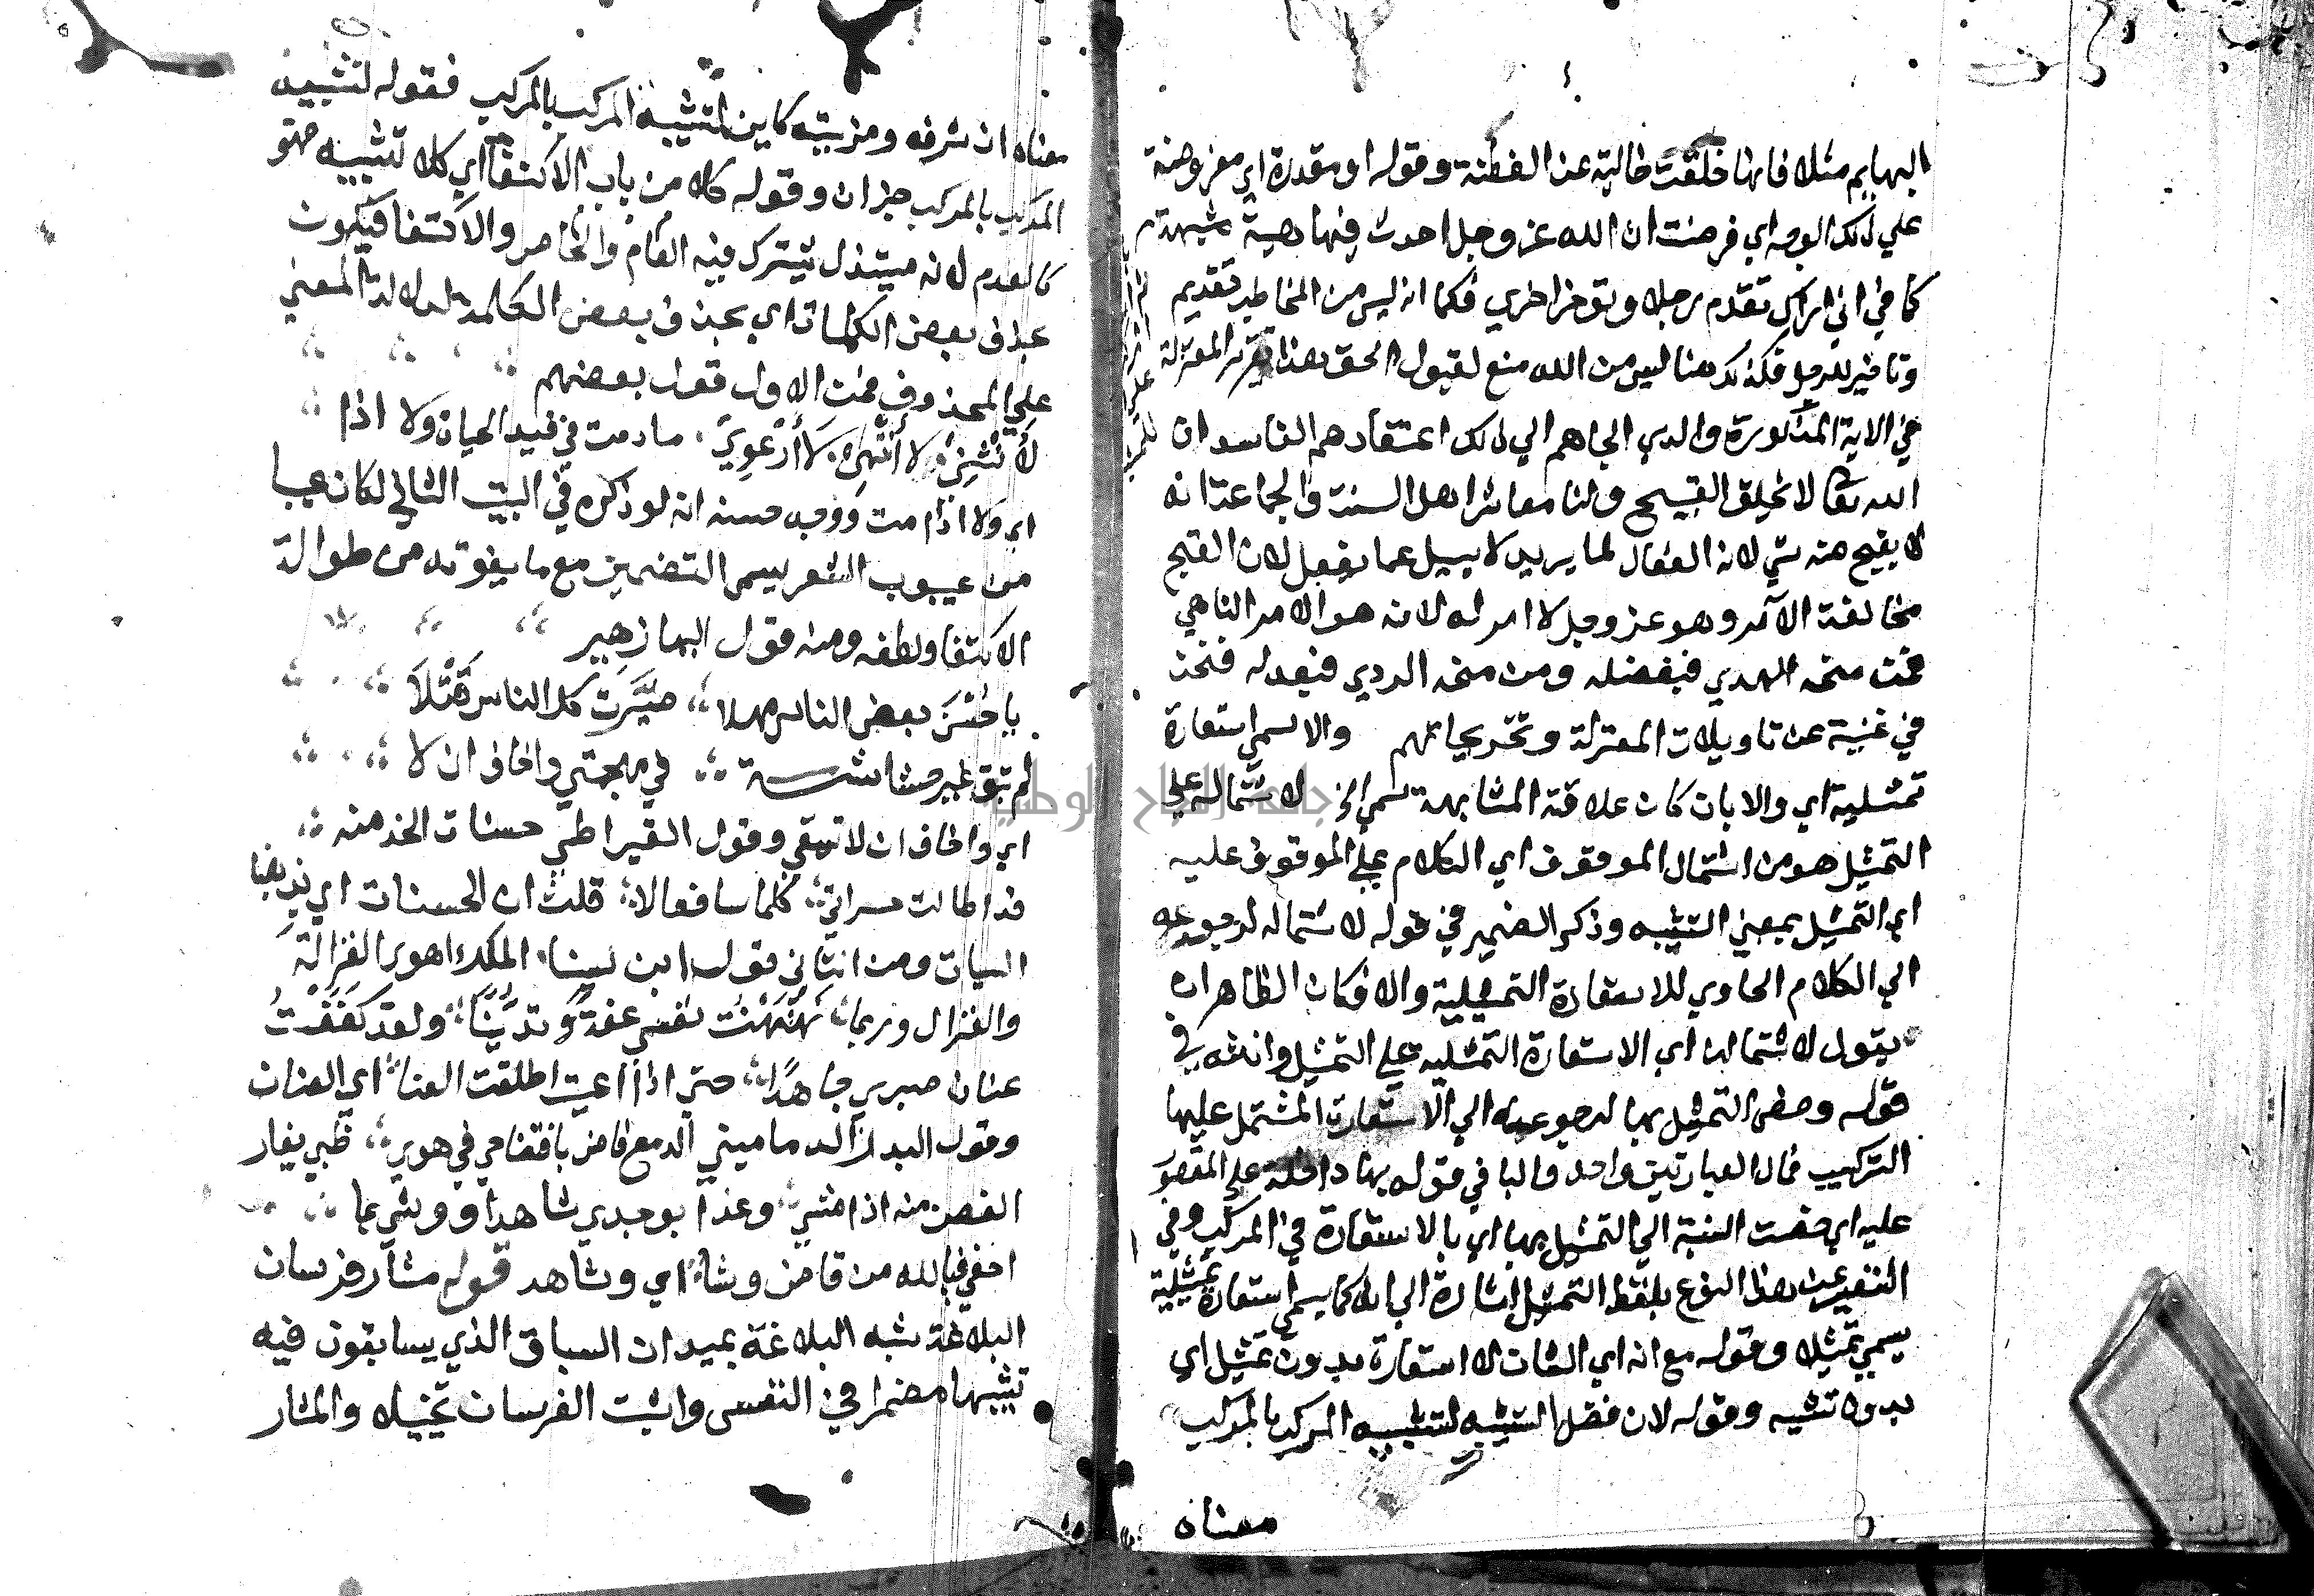 البهايم مثلا فانها خلقت خالية عن الفطنة وقوله او مقدرة اي مفروضة
علي ذلك الوجه اي فرضت ان الله عز وجل احدث فيها هيية شبهت
كما في اني اراك تقدم رجلا وتوخر اخري فكما انه ليس من المخاطب تقديم
وتاخير للرجل فكذلك هنا ليس من الله منع لقبول الحق هذا تقرير المعتزلة
في الاية المذكورة والذي الجاهم الي ذلك اعتقادهم الفاسد ان
الله تعالا لا يخلق القبيح ولنا معاشر اهل السنة والجماعة انه
لا يقبح منه شي لانه الفعال لما يريد لا يسيل عما يفعل لان القبح
مخالفة الآمر وهو عز وجل لا امر له لانه هو الامر الناهي
فمن منحه الهدي فبفضله ومن منحه الردي فبعدله فنحن
في غنية عن تاويلات المعتزلة وتخريجاتهم والا سمي استعارة
تمثيلية اي والا بان كان علاقة المشابهة سمي الخ لاشتماله علي
التمثيل هو من اشتمال الموقوف اي الكلام علي الموقوف عليه
اي التمثيل بمعني التشبيه وذكر الضمير في قوله لاشتماله لرجوعه
الي الكلام الحاوي للاستعارة التمثيلية والا فكان الظاهر ان
يقول لاشتمالها اي الاستعارة التمثيلية علي التمثيل وانثه في
قوله وخص التمثيل بها لرجوعه الي الاستعارة المشتمل عليها
التركيب فمال العبارتين واحد والبا في قوله بها داخلة علي المقصور
عليه اي خصت النسبة الي التمثيل بها اي بالاستعارة في المركب وفي
التعبير عن هذا النوع بلفظ التمثيل اشارة الي انه كما يسمي استعارة تمثيلية
يسمي تمثيلا وقوله مع انه اي الشان لا استعارة بدون تمثيل اي
بدون تشبيه وقوله لان فضل التشبيه لتشبيه المركب بالمركب
معناه
معناه ان شرفه ومزيته كاين لتشبيه المركب بالمركب فقوله لتشبيه
المركب بالمركب خبر ان وقوله كلا من باب الاكتفا اي كلا تشبيه فهو
كالعدم لانه مبتذل يشترك فيه العام والخاص والاكتفا فيكون
بحذف بعض الكلمات اي بحذف بعض الكلمة لدلالة المعني
علي المحذوف فمن الاول قول بعضهم
لا أنتهي لا أنثني لا أرعوي ما دمت في قيد الحياة ولا اذا
اي ولا اذا مت ووجه حسنه انه لو ذكره في البيت الثاني لكان عيبا
من عيوب الشعر يسمي التضمين مع ما يفوته من طوالة
الاكتفا ولطفه ومنه قول البها زهير
يا حسن بعض الناس مهلا صيرت كل الناس قتلا
لم تبق غير حشاشة في مهجتي واخاف ان لا
اي واخاف ان لا تبقي وقول القيراطي حسنات الخد منه
قد اطالت حسراتي كلما سا فعالا قلت ان الحسنات اي يذهبن
السيات ومن الثاني قول ابن سينا الملك اهوي الغزالة
والغزال وربما نهنهت نفسي عفة وتدينا ولقد كففت
عنان صبري جاهدا حتي اذا اعييت اطلقت العنا اي العنان
وقول البدر الدماميني الدمع قاض بافتضاحي في هوي ظبي يغار
الغصن منه اذا مشي وغدا بوجدي شاهدا ووشي بما
اخفي فيالله من قاض وشا اي وشاهد قوله مثار فرسان
البلاغة شبه البلاغة بميدان السباق الذي يسابقون فيه
تشبيها مضمرا في النفس واثبت الفرسان تخييلا والمثار